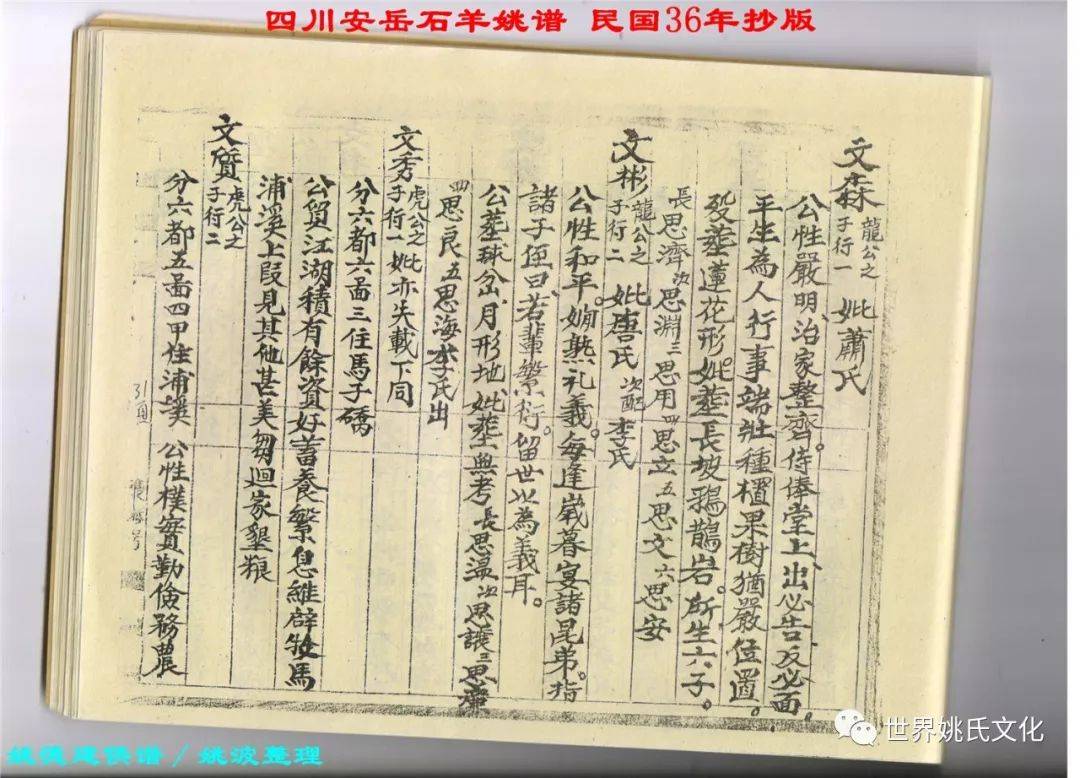 四川安岳石羊姚谱 民国36年抄版
文森 龍公之子行一 妣蕭氏
公性嚴明、治家整齊。侍俸堂上、出必告反必面。
平生為人行事端壯種植果樹猶嚴位置。
殁塟蓮花形妣塟長坡鴉鵲岩。所生六子。
長思濟次思淵三思用四思立五思文六思安
文彬 龍公之子行二 妣唐氏 次配李氏
公性和平。嫻熟礼義。每逢嵗暮宴諸昆弟。指
諸子侄曰、若輩繁衍。留世以為義耳。
公塟球岔月形地、妣塟與考 長思温次思讓三思廉
四思良五思海李氏出
文秀 虎公之子行一 妣亦失載下同
分六都六啚三住馬子礄
公貿江湖積有餘資好蓄養繁息維辟牧馬
浦溪上段見其他甚美芻迴家墾
文質 虎公之子行二
分六都五啚四甲住浦溪 公性樸實勤儉務農
姚波整理
世界姚氏文化